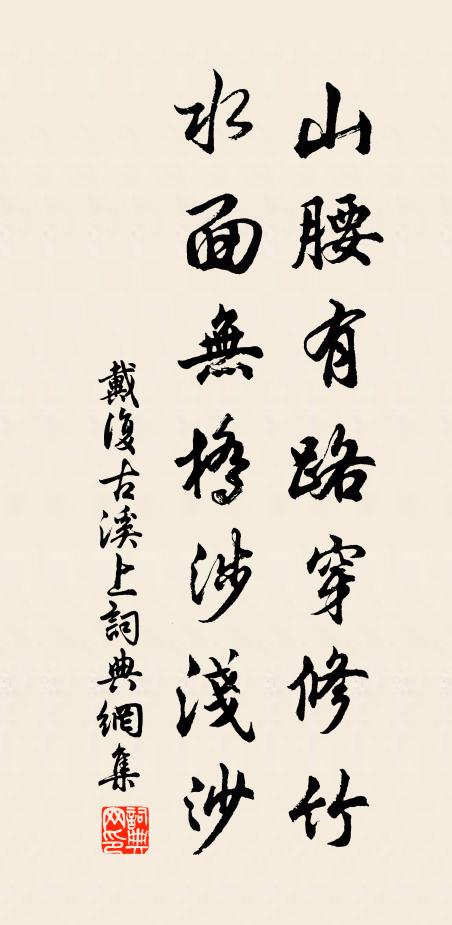 山腰有路穿修竹
水面無橋涉淺沙
戴復古溪上詞典網集
詞典網印